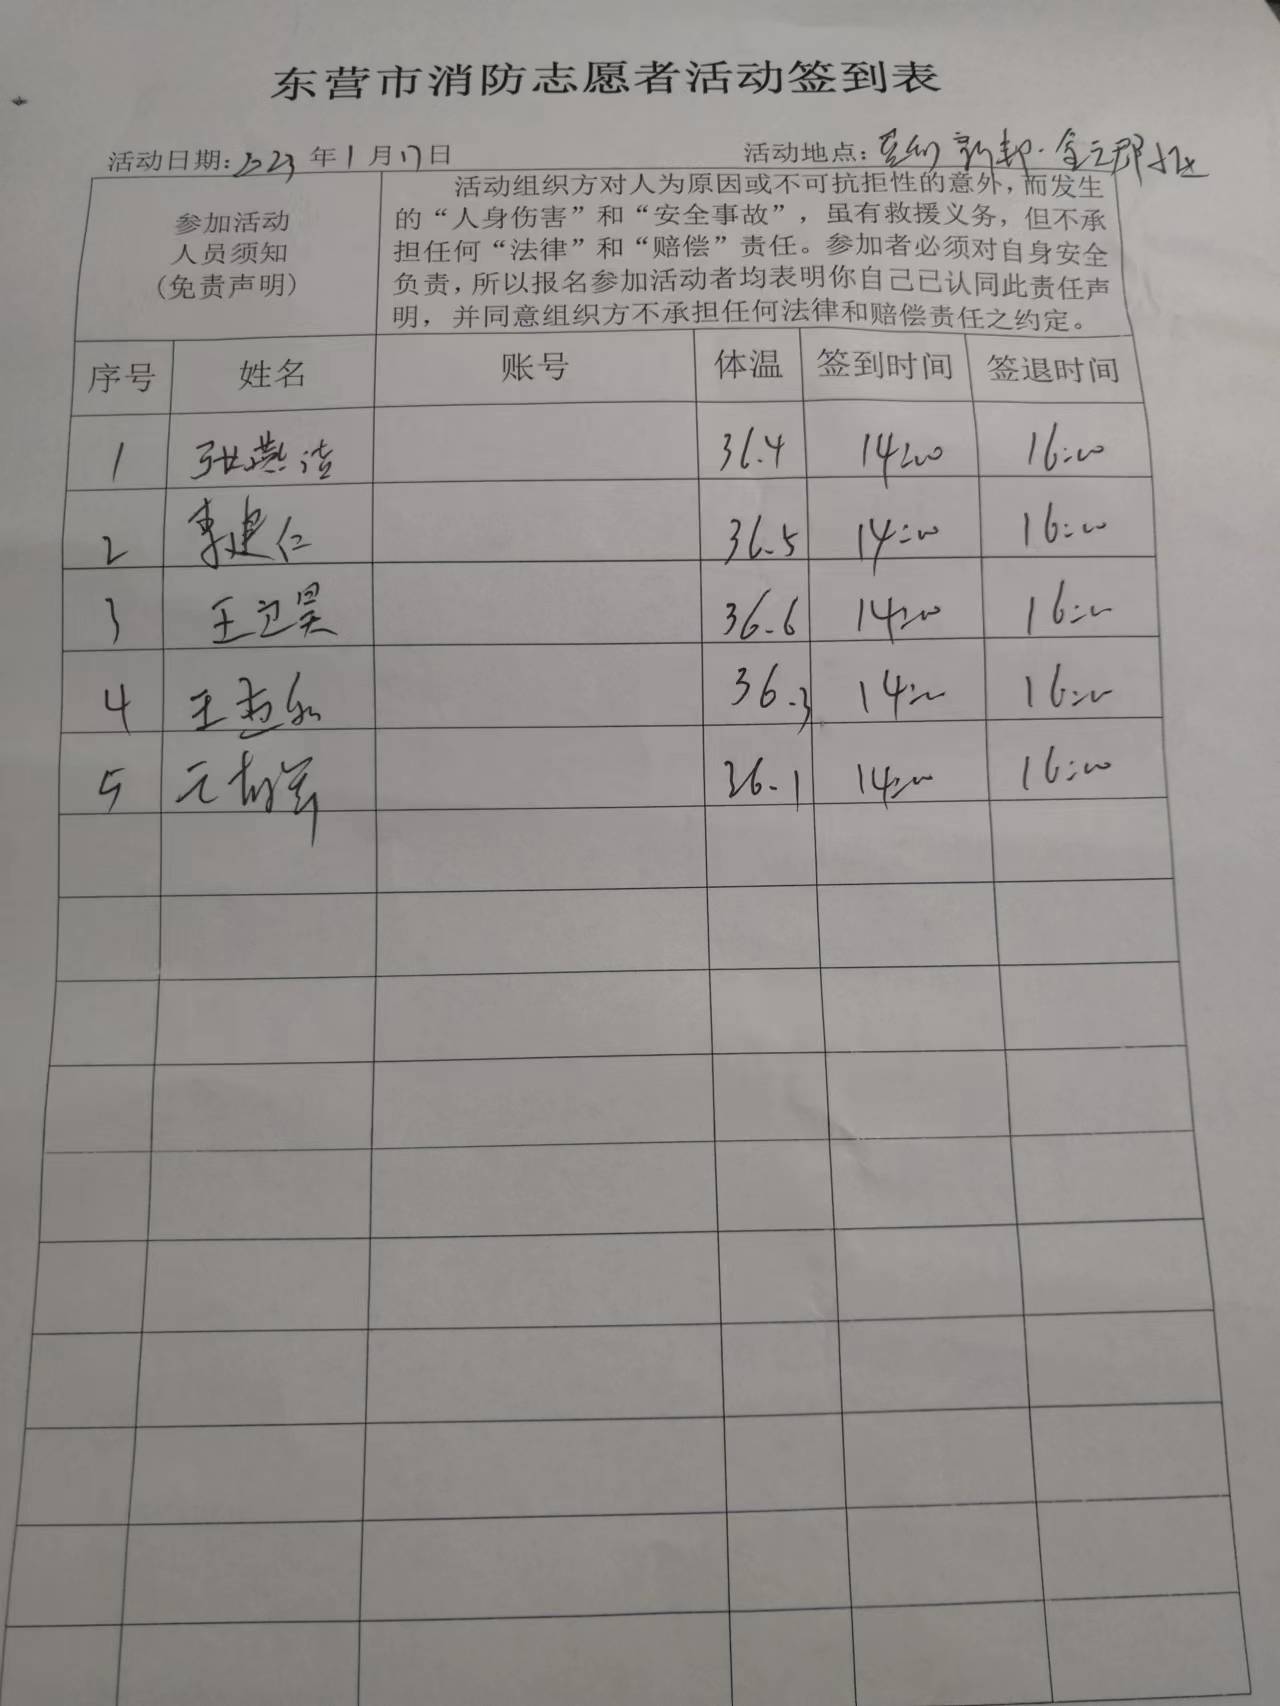 东营市消防志愿者活动签到表
活动日期:2023年1月17日 活动地点:
参加活动
人员须知
(免责声明)
活动组织方对人为原因或不可抗拒性的意外,而发生
的“人身伤害”和“安全事故”,虽有救援义务,但不承
担任何“法律”和“赔偿”责任。参加者必须对自身安全
负责,所以报名参加活动者均表明你自己已认同此责任声
明,并同意组织方不承担任何法律和赔偿责任之约定。
序号 姓名 账号 体温 签到时间 签退时间
1 张燕洁 36.4 14:00 16:00
2 李建仁 36.5 14:00 16:00
3 王卫昊 36.6 14:00 16:00
4 王 36.3 14:00 16:00
5 36.1 14:00 16:00